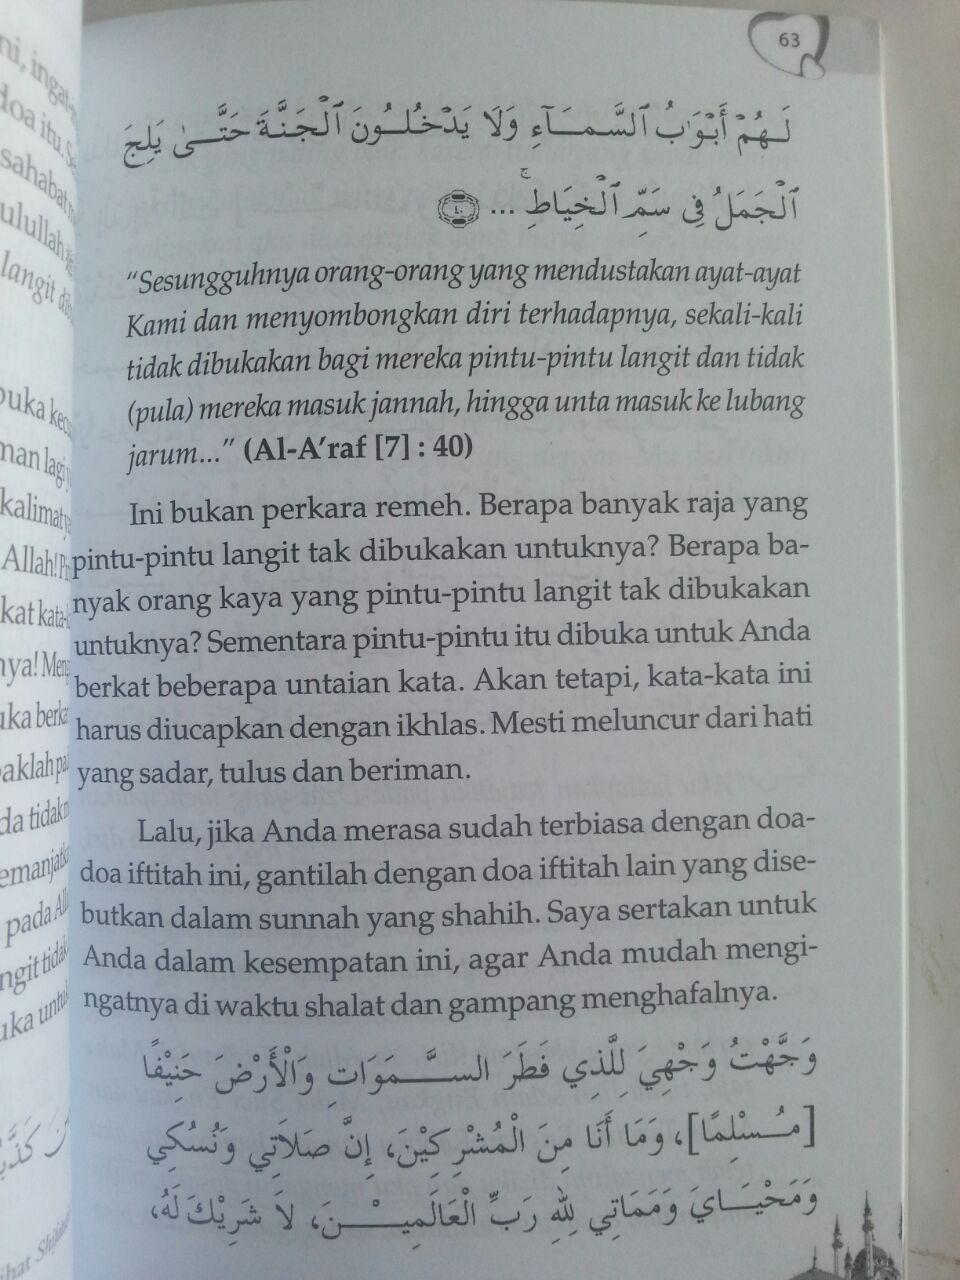 63
لَهُمْ أَبْوَٰبُ ٱلسَّمَآءِ وَلَا يَدْخُلُونَ ٱلْجَنَّةَ حَتَّىٰ يَلِجَ
ٱلْجَمَلُ فِى سَمِّ ٱلْخِيَاطِ ۚ ... ٤٠
"Sesungguhnya orang-orang yang mendustakan ayat-ayat
Kami dan menyombongkan diri terhadapnya, sekali-kali
tidak dibukakan bagi mereka pintu-pintu langit dan tidak
(pula) mereka masuk jannah, hingga unta masuk ke lubang
jarum..." (Al-A'raf [7] : 40)
Ini bukan perkara remeh. Berapa banyak raja yang
pintu-pintu langit tak dibukakan untuknya? Berapa ba-
nyak orang kaya yang pintu-pintu langit tak dibukakan
untuknya? Sementara pintu-pintu itu dibuka untuk Anda
berkat beberapa untaian kata. Akan tetapi, kata-kata ini
harus diucapkan dengan ikhlas. Mesti meluncur dari hati
yang sadar, tulus dan beriman.
Lalu, jika Anda merasa sudah terbiasa dengan doa-
doa iftitah ini, gantilah dengan doa iftitah lain yang dise-
butkan dalam sunnah yang shahih. Saya sertakan untuk
Anda dalam kesempatan ini, agar Anda mudah mengi-
ngatnya di waktu shalat dan gampang menghafalnya.
وَجَّهْتُ وَجْهِيَ لِلَّذِي فَطَرَ السَّمَوَاتِ وَالْأَرْضَ حَنِيْفًا
[مُسْلِمًا]، وَمَا أَنَا مِنَ الْمُشْرِكِيْنَ، إِنَّ صَلَاتِي وَنُسُكِي
وَمَحْيَايَ وَمَمَاتِي لِلهِ رَبِّ الْعَالَمِيْنَ، لَا شَرِيْكَ لَهُ،